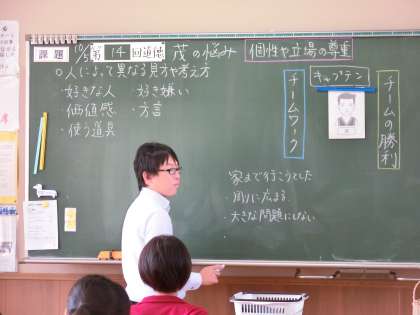 課題 第14回道徳 茂の悩み 個性や立場の尊重
○人によって異なる見方や考え方
・好きな人 ・好き嫌い
・価値感 ・方言
・使う道具
チームワーク
キャプテン
チームの勝利
家まで行こうとした
・周りに広まる
・大きな問題にしない